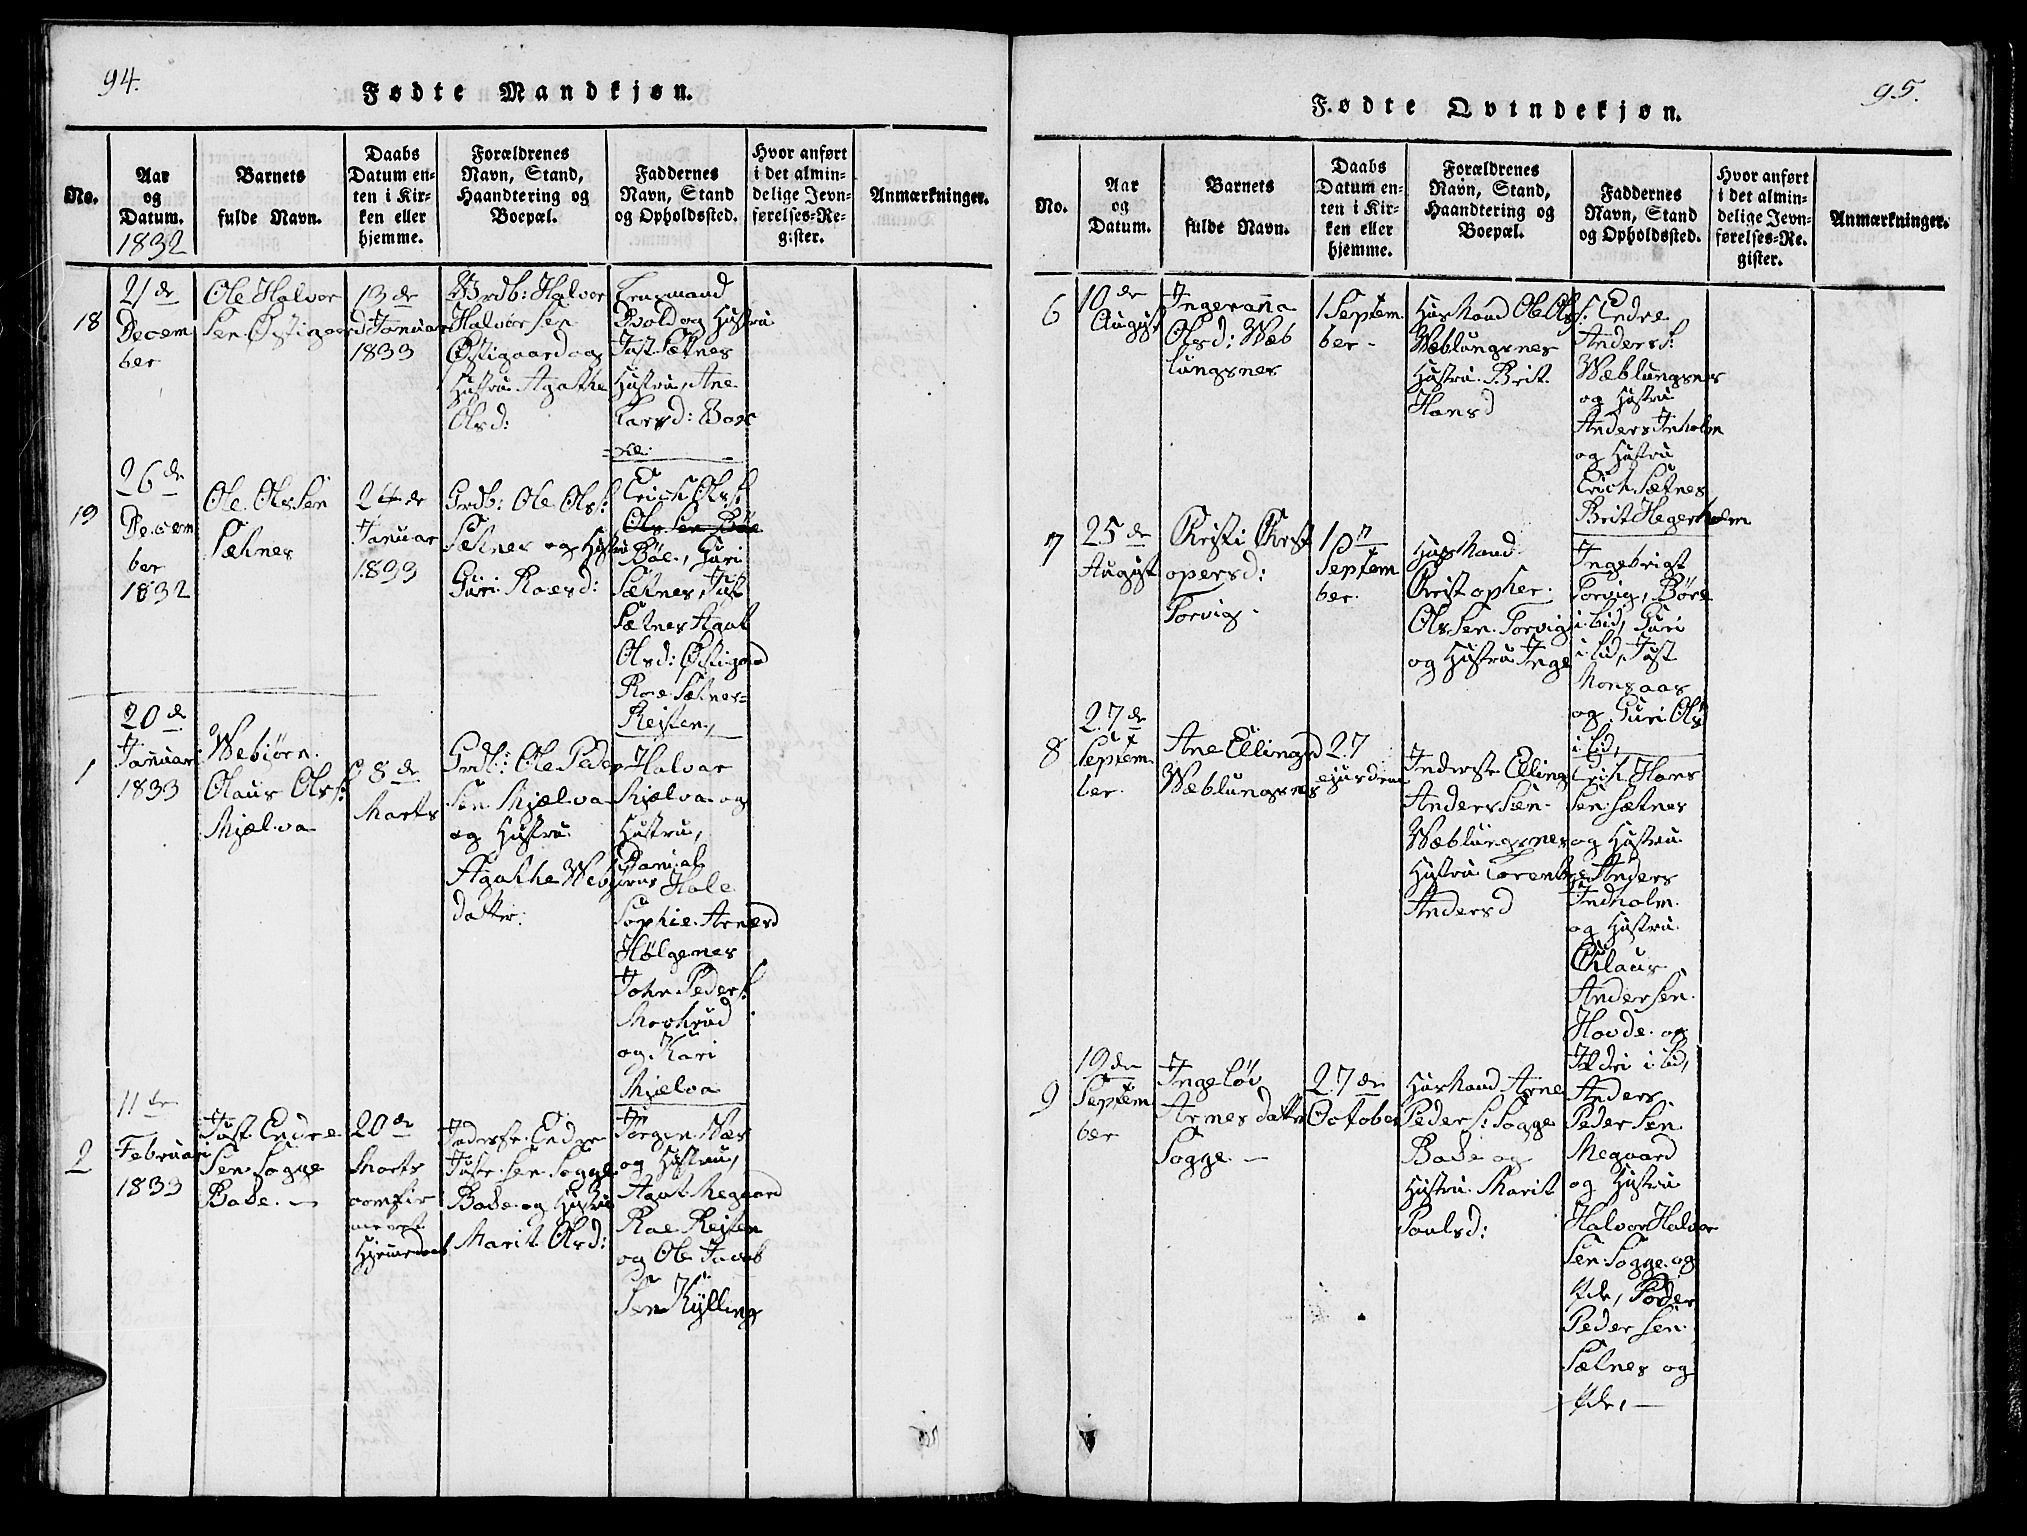 94.
Fødte Mandkjøn.
No.
Aar
og
Datum.
1832
Barnets
fulde Navn.
Daabs
Datum en-
ten i Kir-
ken eller
hjemme.
Forældrenes
Navn, Stand,
Haandtering og
Boepæl.
Faddernes
Navn, Stand
og Opholdssted.
Hvor anført
i det almin-
delige Jevn-
førelses-Re-
gister.
Anmærkninger.
18
21 de
Decem
ber
Ole Halvor
Sen Østigaard
13 de
Januar
1833
Grdb: Halvor
Halvor Sen
Østigaard og
Hustru Agathe
Olsd:
Lensmand
Bold og Hustru
Just Sætnes
Hustru, Ane
Larsd: Box
19
26 de
Decem
ber
1832
Ole Ols Sen
Sætnes
24 de
Januar
1833
Grdb: Ole Ols:
Sætnes og Hustru
Guri Roesd:
Erich Ols:
Ole Sen Böe
Böe, Guri
Sætnes, Just
Sætnes Agat
Olsd: Østigaard
Roe Sætnes
Reisten,
1
20 de
Januar
1833
Webiørn
Olaus Ols:
Mjelva
8 de
Marts
Grdb: Ole Peder
Sen Mjelva
og Hustru
Agathe Webiørns
datter.
Halvor
Mjelva og
Hustru,
Daniel
Hole
Sophie Arnesd
Hølgenes
John Peders:
og Kari
Mjelva
2
11 te
Februari
1833
Just Endre
Sen Sogge
Bade. —
20 de
Marts
comfir
meret
Hjemmedaab
Inderste Endre
Just Sen Sogge
Bade og Hustru
Marit Olsd:
Jørgen Næs
og Hustru,
Agat Megaard
Roe Reisten
og Ole Jacob
Sen Kylling
95.
Fødte Qvindekjøn.
No.
Aar
og
Datum.
Barnets
fulde Navn.
Daabs
Datum en-
ten i Kir-
ken eller
hjemme.
Forældrenes
Navn, Stand,
Haandtering og
Boepæl.
Faddernes
Navn, Stand
og Opholdssted.
Hvor anført
i det almin-
delige Jevn-
førelses-Re-
gister.
Anmærkninger.
6
10 de
August
Ingeranna
Olsd: Wæb
lungsnes
1 Septem
ber -
Husmand Ole Ols:
Wæblungsnes
Hustru Brit
Hansd
Endre
Anders:
Wæblungsnes
og Hustru
Anders Inholm
og Hustru
Erich Sætnes
Brit Hegerholm
7
25 de
August
Christi Christ
opersd:
Torvig.
1
Septem
ber.
Husmand
Christopher
Ols Sen Torvig
og Hustru Inge
Ingebrigt
Torvig, Böre
i Lid, Guri
i Lid, Just
Monsaas
og Guri Ols
i Lid,
8
27 de
Septem
ber.
Ane Ellingsd
Wæblungsnes
27
ejusdem
Inderste Elling
Anders Sen
Wæblungsnes
Hustru Lorentse
Andersd
Erich Hans
Sen Sætnes
og Hustru
Anders
Indholm
og Hustru
Claus
Andersen
Hovde og
i Lid,
9
19 de
Septem
ber
Ingeløv
Arnes datter
Sogge. —
27 de
October
Husmand Arne
Peders: Sogge
Bade og
Hustru Marit
Poulsd:
Anders
Peder Sen
Megaard
og Hustru
Halvor Halvor
Sen Sogge og
Peder
Peder Sen
Sætnes og